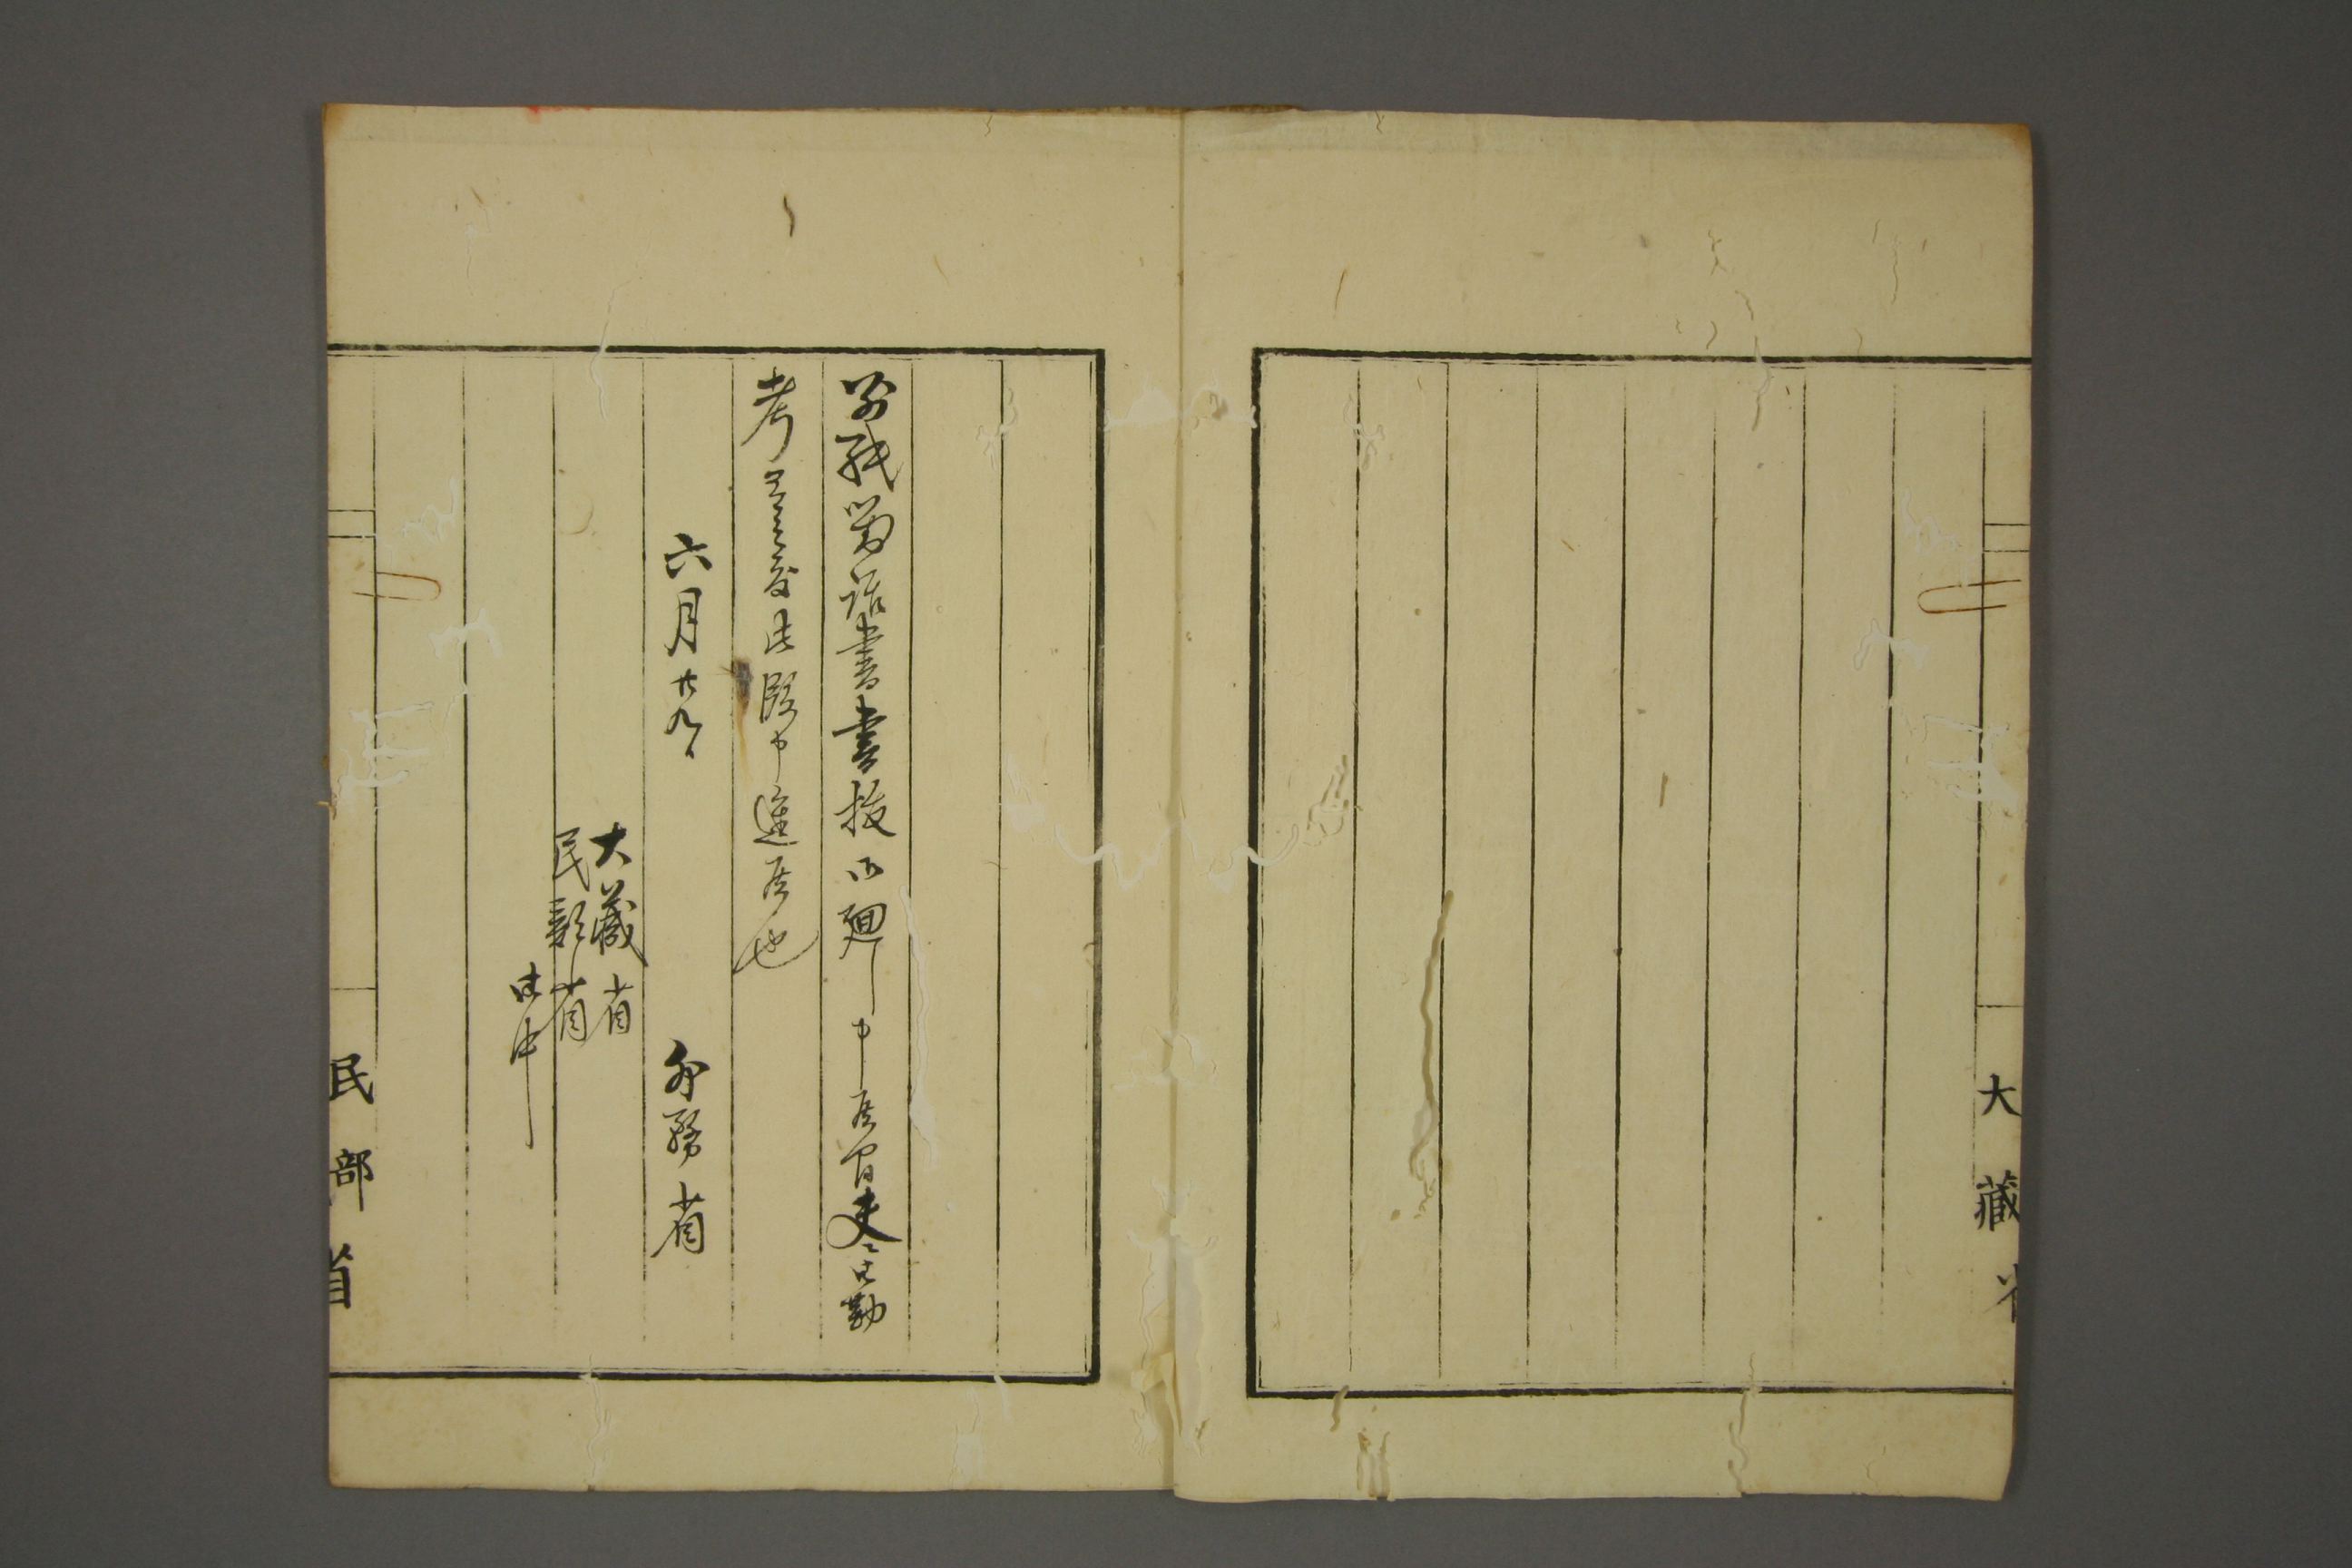 大藏省
別紙對話書書抜御廻申候間夫々御勘
考有之度此段申進候也
六月廿九日
外務省
大藏省
民部省
御中
民部省